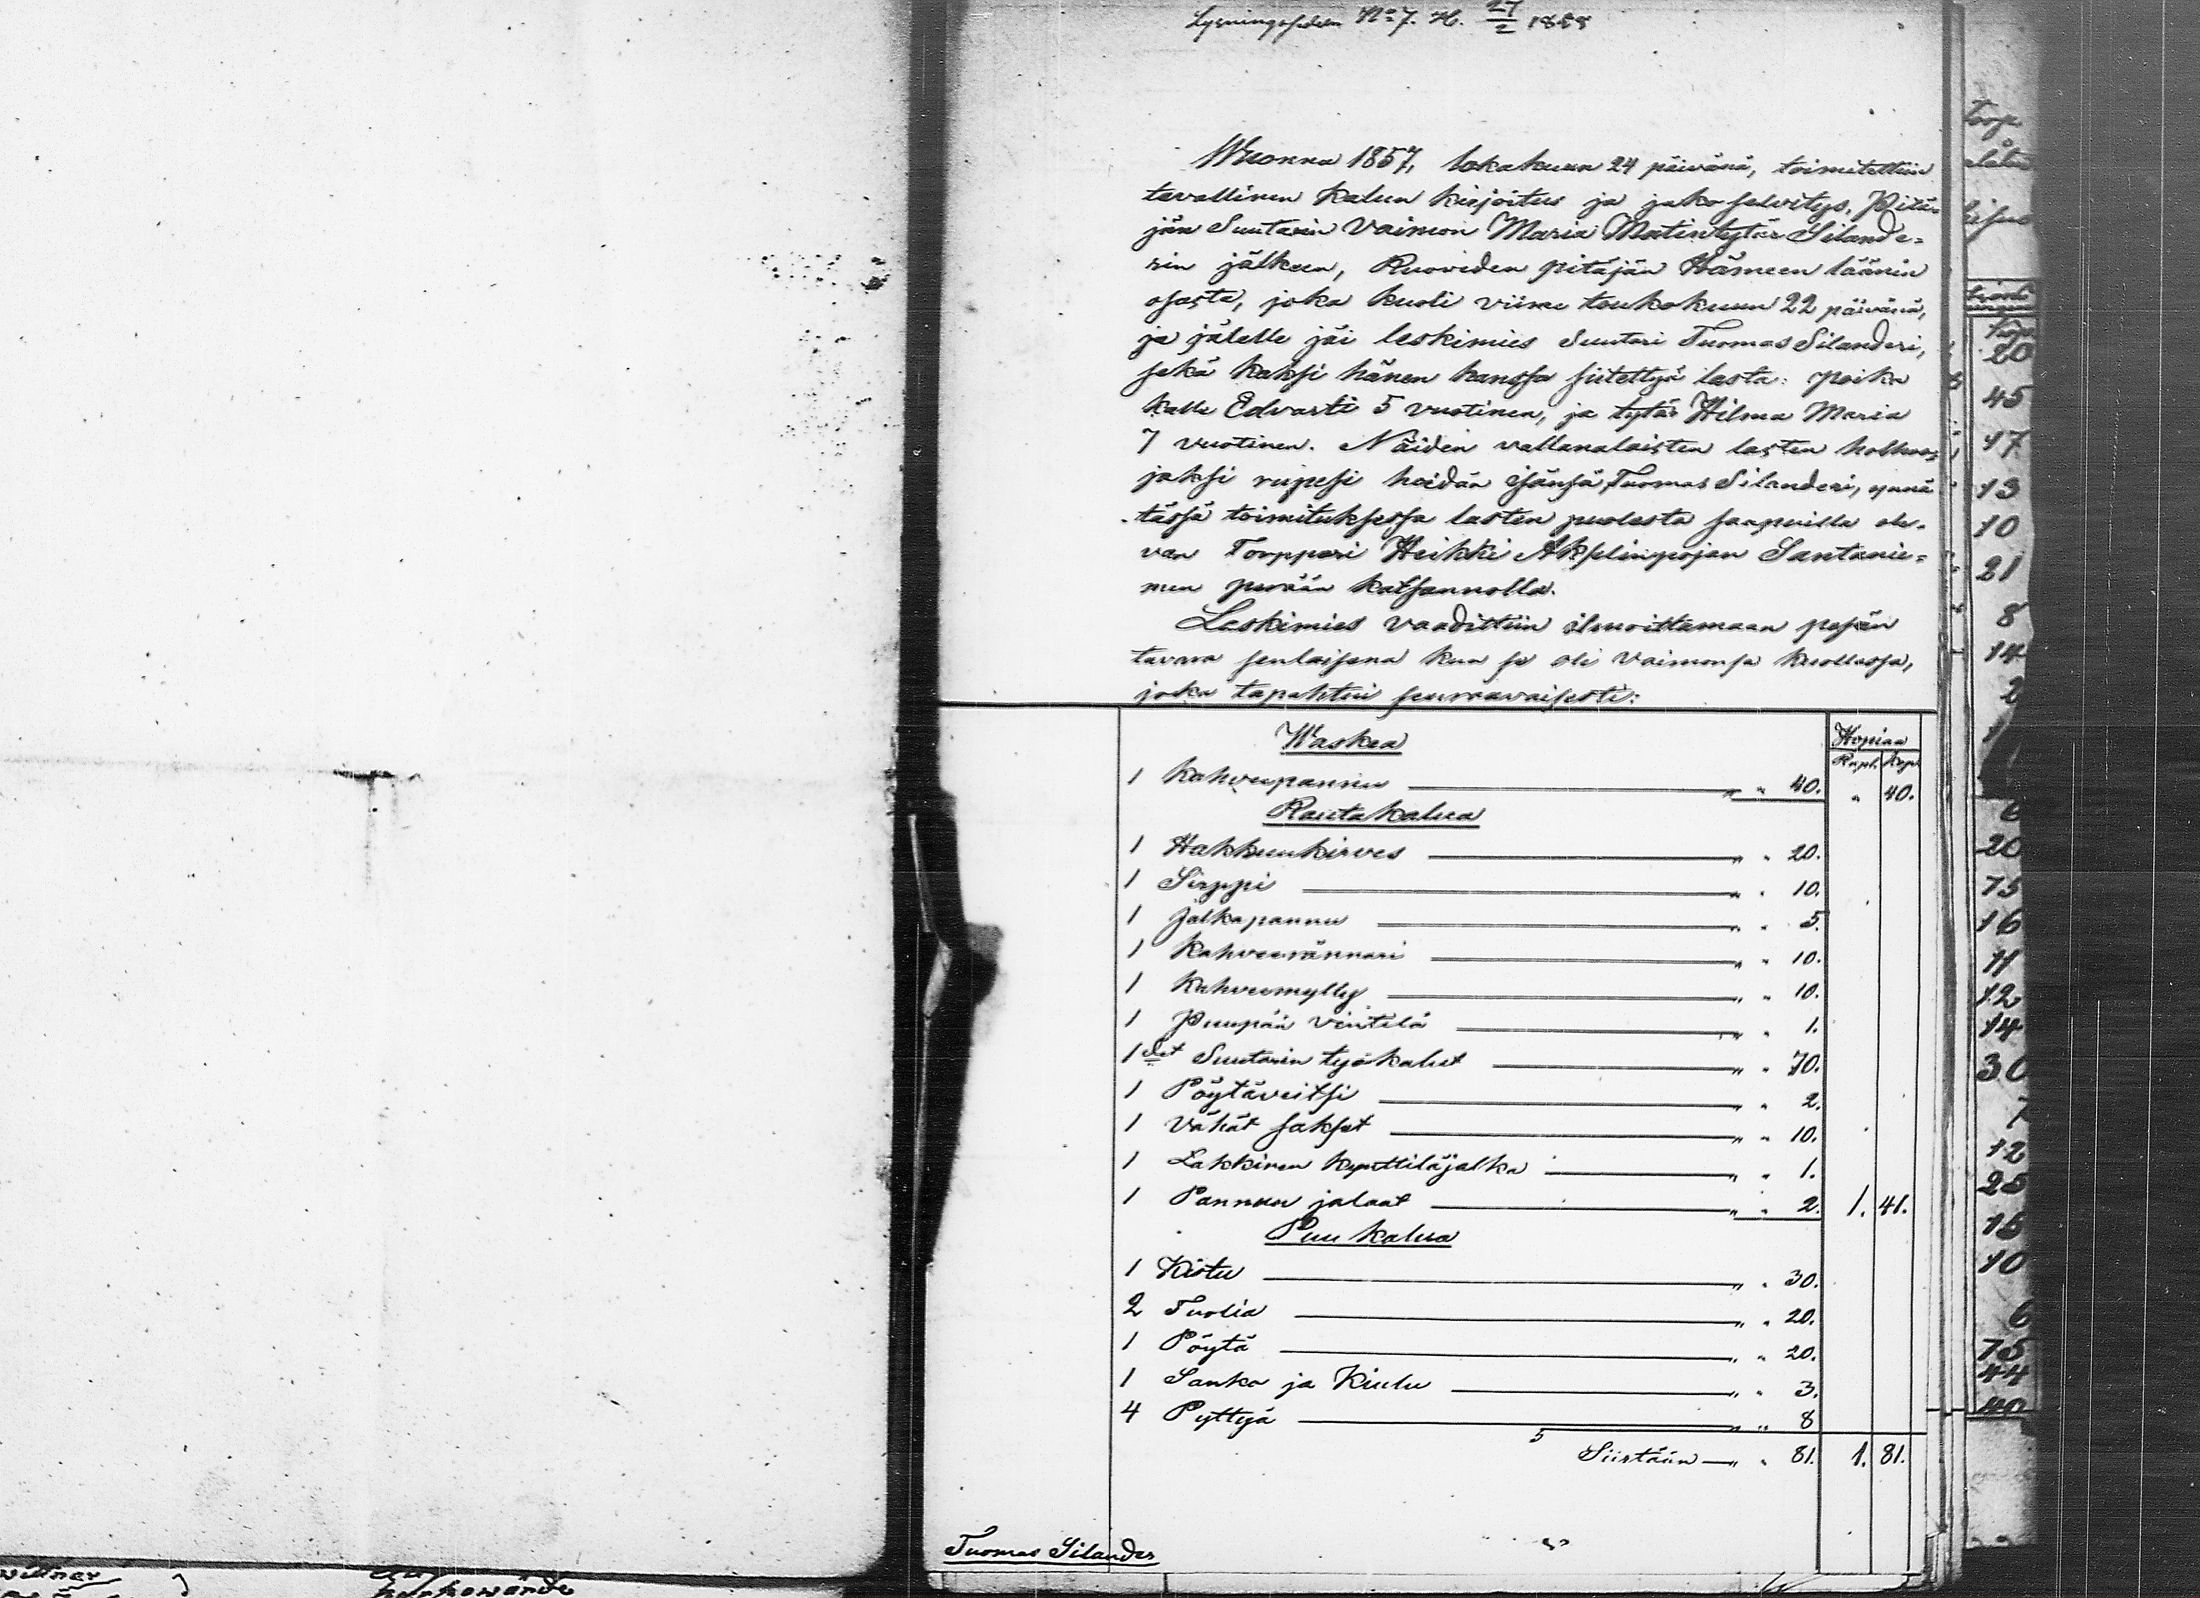 N:o 7. H. 27/2 1858
Wuonna 1857, lokakuun 24 päivänä, toimitettiin
tavallinen kalun kirjoitus ja jako selvitys, Pitä-
jän Suutarin Vaimon Maria Matintytär Silande-
rin jälkeen, Ruoveden pitäjän Hämeen läänin
osasta, joka kuoli viime toukokuun 22 päivänä,
ja jälelle jäi leskimies Suutari Tuomas Silanderi,
sekä kaksi hänen kanssa siitettyä lasta: poika
Kalle Edvarti 5 vuotinen, ja tytär Hilma Maria
7 vuotinen. Näiden vallanalaisten lasten holhoo-
jaksi rupesi heidän isänsä, Tuomas Silanderi, ynnä
tässä toimituksessa lasten puolesta saapuilla ole-
van Torppari Heikki Akselinpojan Santanie-
men perään katsannolla.
Leskimies vaadittiin ilmoittamaan pesän
tavara senlaisena kun se oli Vaimonsa kuollessa,
joka tapahtui seuraavaisesti:
Waskea
Hopiaa
Rupl. Kop.
1 Kahveepannu " " 40. " 40.
Rautakalua
1 Hakkuukirves " " 20.
1 Sirppi " " 10.
1 Jalkapannu " " 5.
1 Kahveerännäri " " 10.
1 Kahveemylly " " 10.
1 Puupää vintilä " " 1.
1 det Suutarin työkalut " " 70.
1 Pöytäveitsi " " 2.
1 Vähät sakset " " 10.
1 Läkkinen kynttiläjalka " " 1.
1 Pannun jalaat " " 2. 1. 41.
Puu kalua
1 Kistu " " 30.
2 Tuolia " " 20.
1 Pöytä " " 20.
1 Sanko ja Kiulu " " 3.
4 Pyttyä " " 8
Siirtään " " 81. 1. 81.
Tuomas Silander
20
45
17
13
10
21
8
14
2
6
20
75
16
11
12
14
30
7
12
25
15
10
6
75
44
40